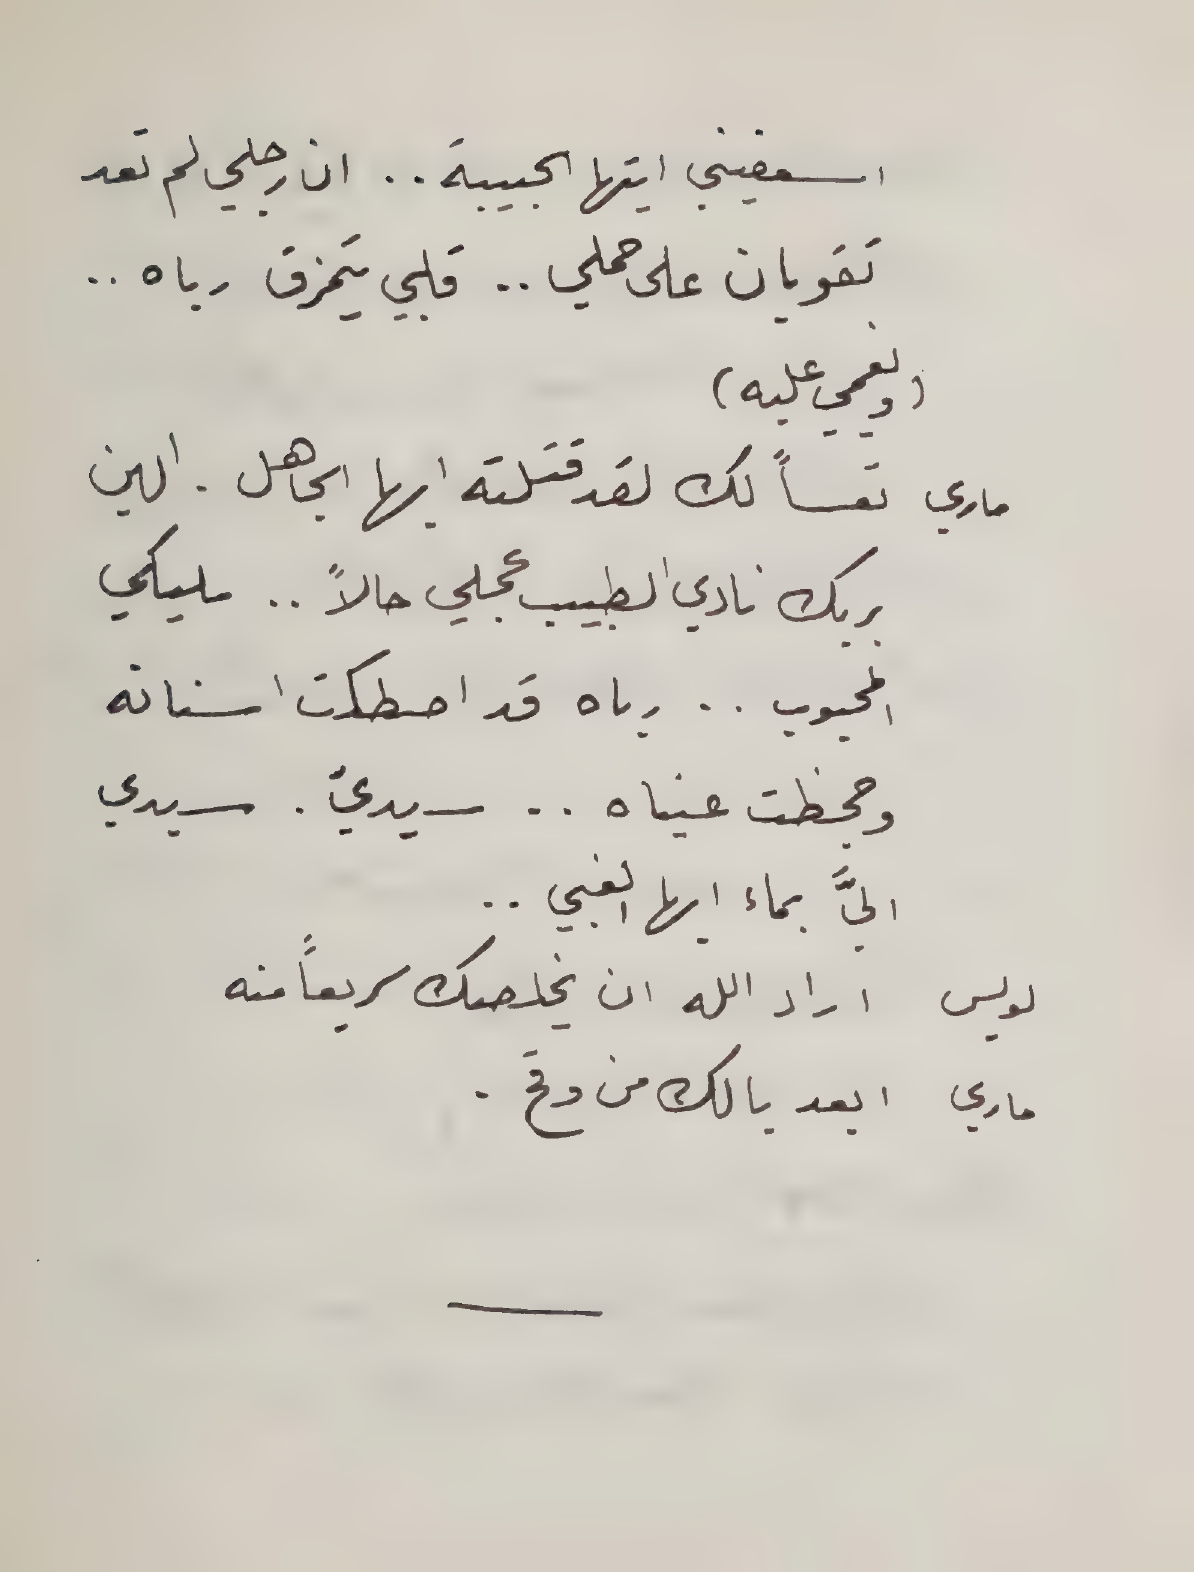 اسعفيني ايتها الحبيبة .. ان رجلي لم تعد
تقويان على حملي .. قلبي يتمزق رباه ..
(ويغمي عليه)
ماري تعساً لك لقد قتلته ايها الجاهل . الين
بربك نادي الطبيب عجلي حالاً .. مليكي
المحبوب .. رباه قد اصطكت اسنانه
وجحظت عيناه .. سيديّ . سيدي
اليَّ بماء ايها الغبي ..
لويس اراد الله ان يخلصك سريعاً منه
ماري ابعد يا لك من وقح .